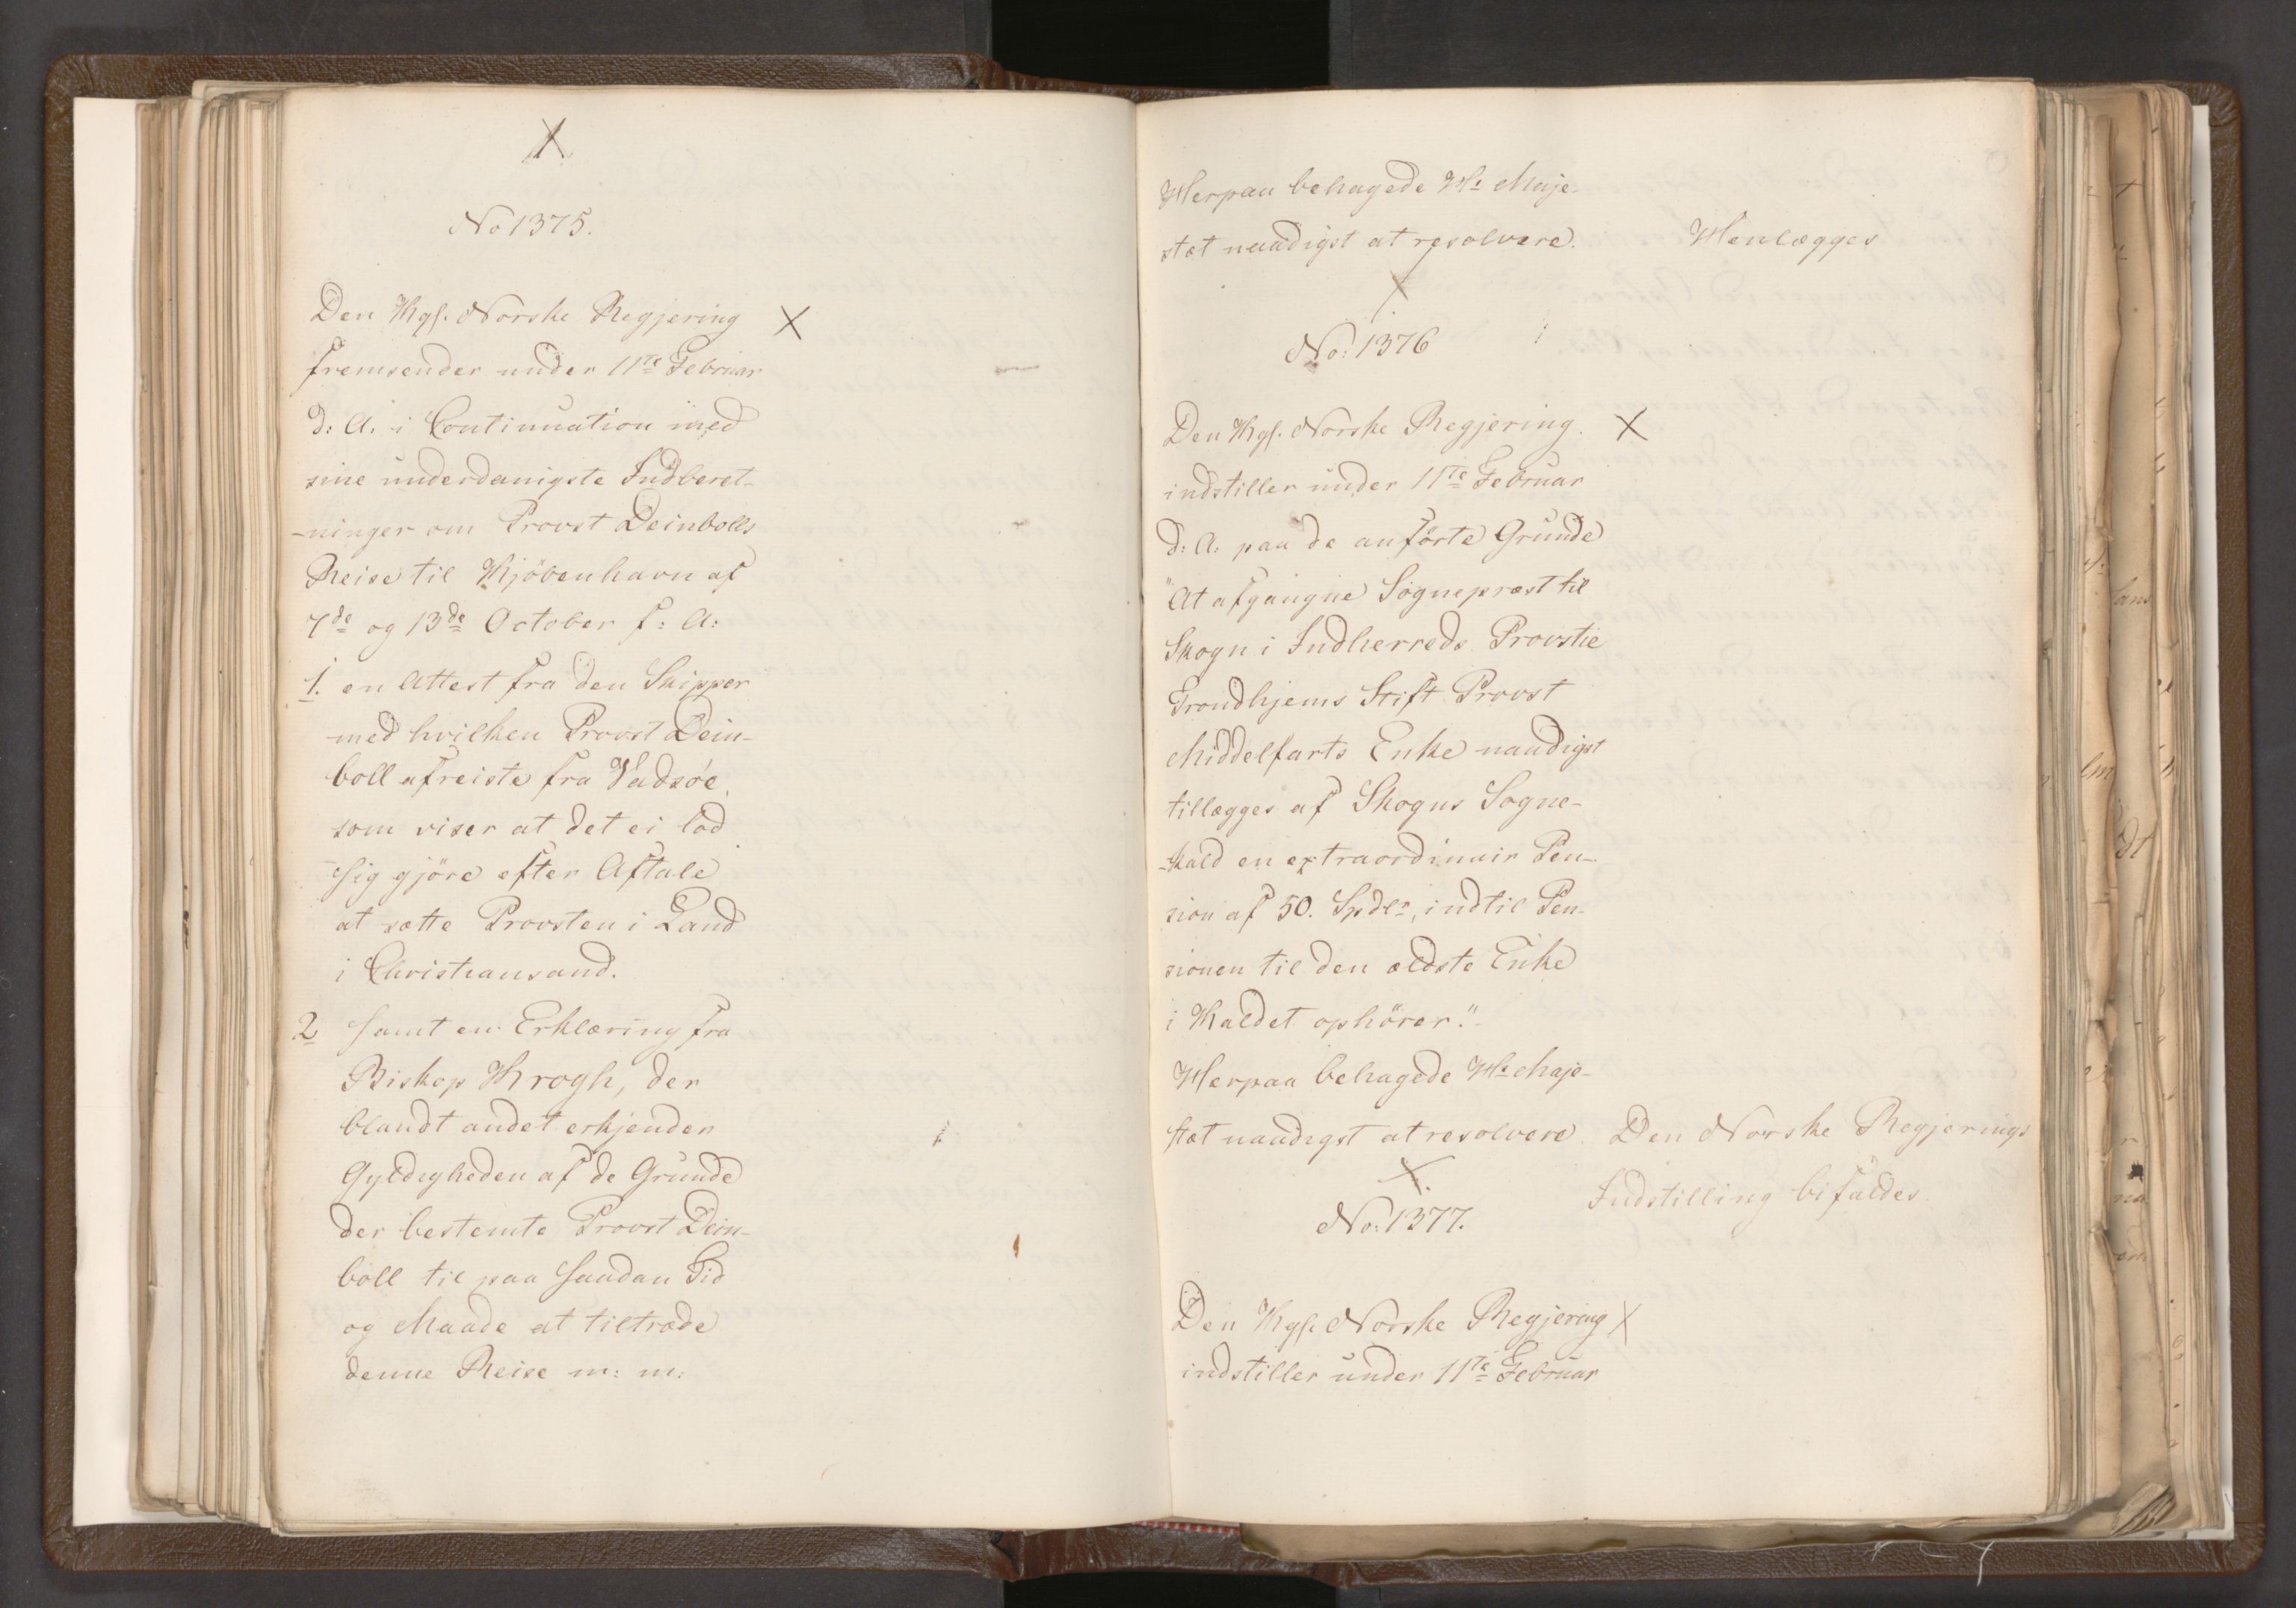 No 1375.
Den Kgl. Norske Regjering
fremsender under 11te Februar
d: A. i Continuation med
sine underdanigste Indberet-
-ninger om Provst Deinbolls
Reise til Kjöbenhavn af
7de og 13de October f: A:
1. en Attest fra den Skipper
med hvilken Provst Dein-
boll afreiste fra Vadsöe,
som viser at det ei lod
sig gjöre efter Aftale
at sætte Provsten i Land
i Christiansand.
2 samt en Erklæring fra
Biskop Krogh, der
blandt andet erkjender
Gyldigheden af de Grunde
der bestemte Provst Dein-
boll til paa saadan Tid
og Maade at tiltræde
denne Reise m: m:
Herpaa behagede Hs Maje-
stæt naadigst at resolvere.
Henlægges
No: 1376
Den Kgl. Norske Regjering.
indstiller under 11te Februar
d: A: paa de anförte Grunde
"At afgangne Sognepræst til
Skogn i Indherreds Provstie
Trondhjems Stift Provst
Middelfarts Enke naadigst
tillægges af Skogns Sogne-
-kald en extraordinair Pen-
sion af 50. Spdlr, indtil Pen-
sionen til den ældste Enke
i Kaldet ophörer."-
Herpaa behagede Hs Maje-
stæt naadigst at resolvere. Den Norske Regjerings
Indstilling bifaldes.
No: 1377.
Den Kgl. Norske Regjering
indstiller under 11te Februar